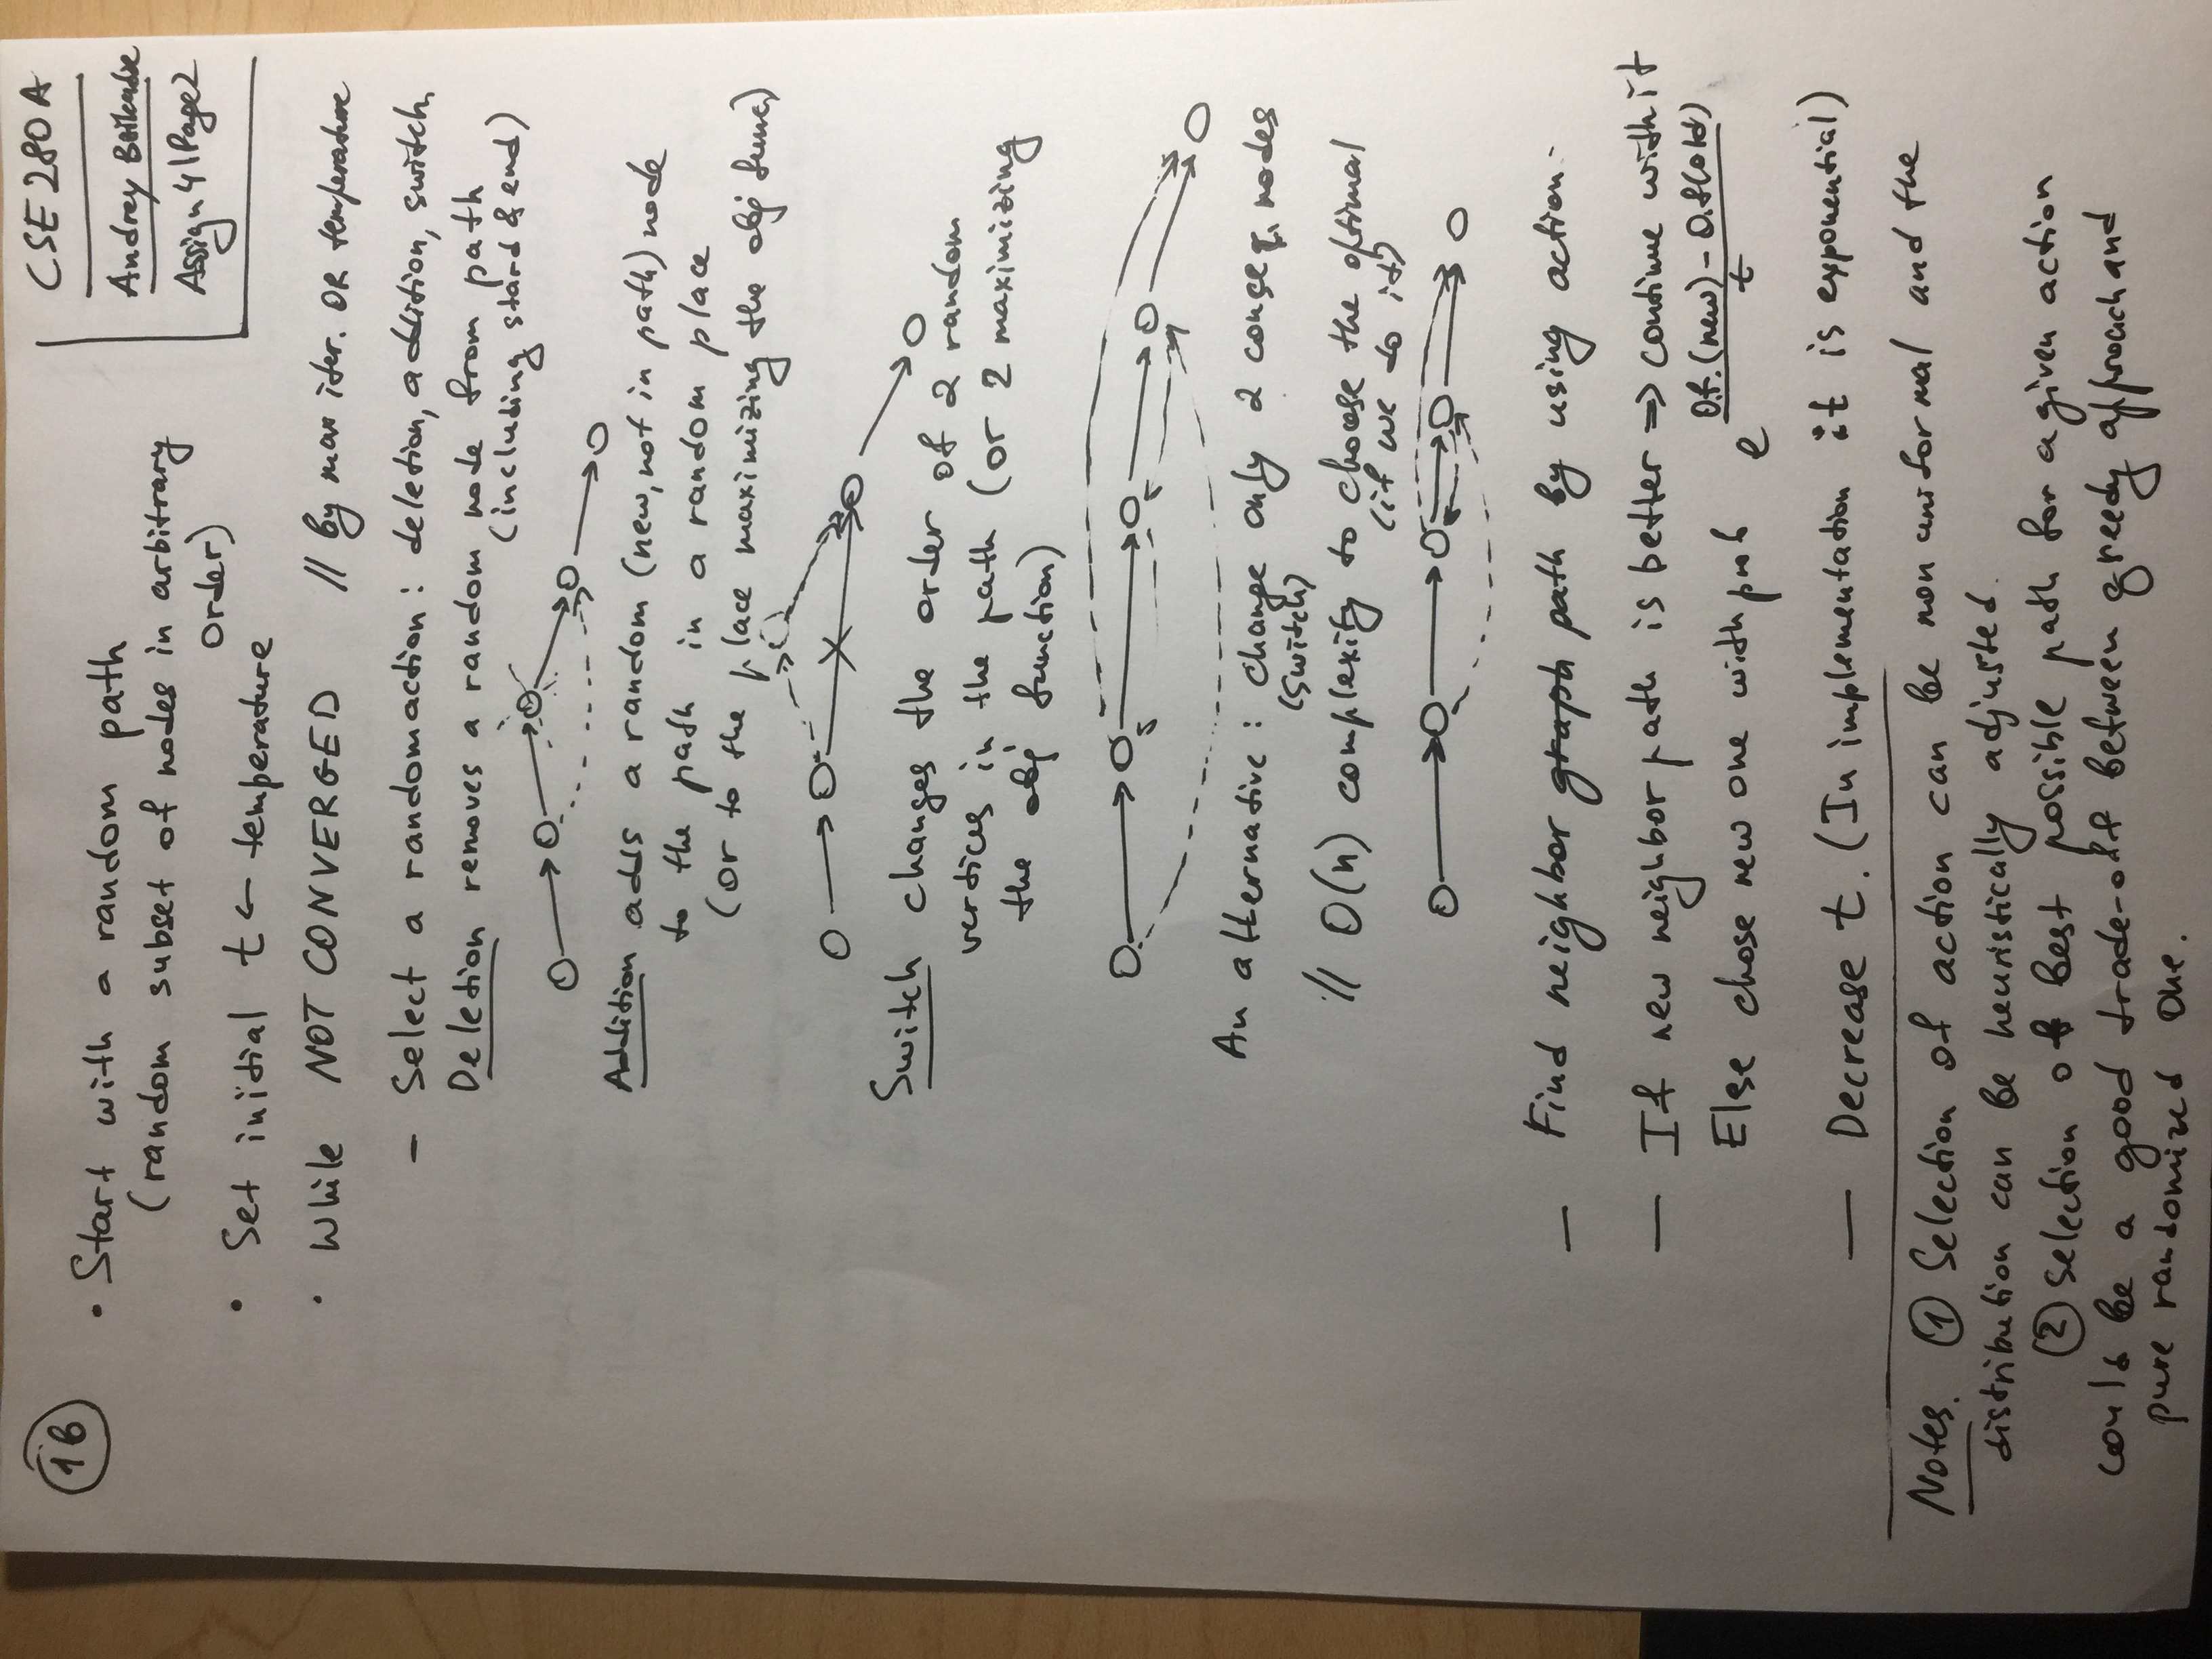 1б
CSE 280A
Andrey
Assign 4 | Page 2
• Start with a random path
(random subset of nodes in arbitrary
order)
• Set initial t ← temperature
• While NOT CONVERGED // by max iter. OR temperature
- Select a random action: deletion, addition, switch,
Deletion removes a random node from path
(including start & end)
Addition adds a random (new, not in path) node
to the path in a random place
(or to the place maximizing the obj func)
Switch changes the order of 2 random
vertices in the path (or 2 maximizing
the obj function)
An alternative: change only 2 conseq. nodes
(switch)
// O(n) complexity to choose the optimal
(if we do it)
— Find neighbor graph path by using action.
— If new neighbor path is better ⇒ continue with it
Else chose new one with prob e^((O.f.(new) - O.f(old))/t)
— Decrease t. (In implementation it is exponential)
Notes. ① Selection of action can be non uniformal and the
distribution can be heuristically adjusted.
② Selection of best possible path for a given action
could be a good trade-off between greedy approach and
pure randomized one.